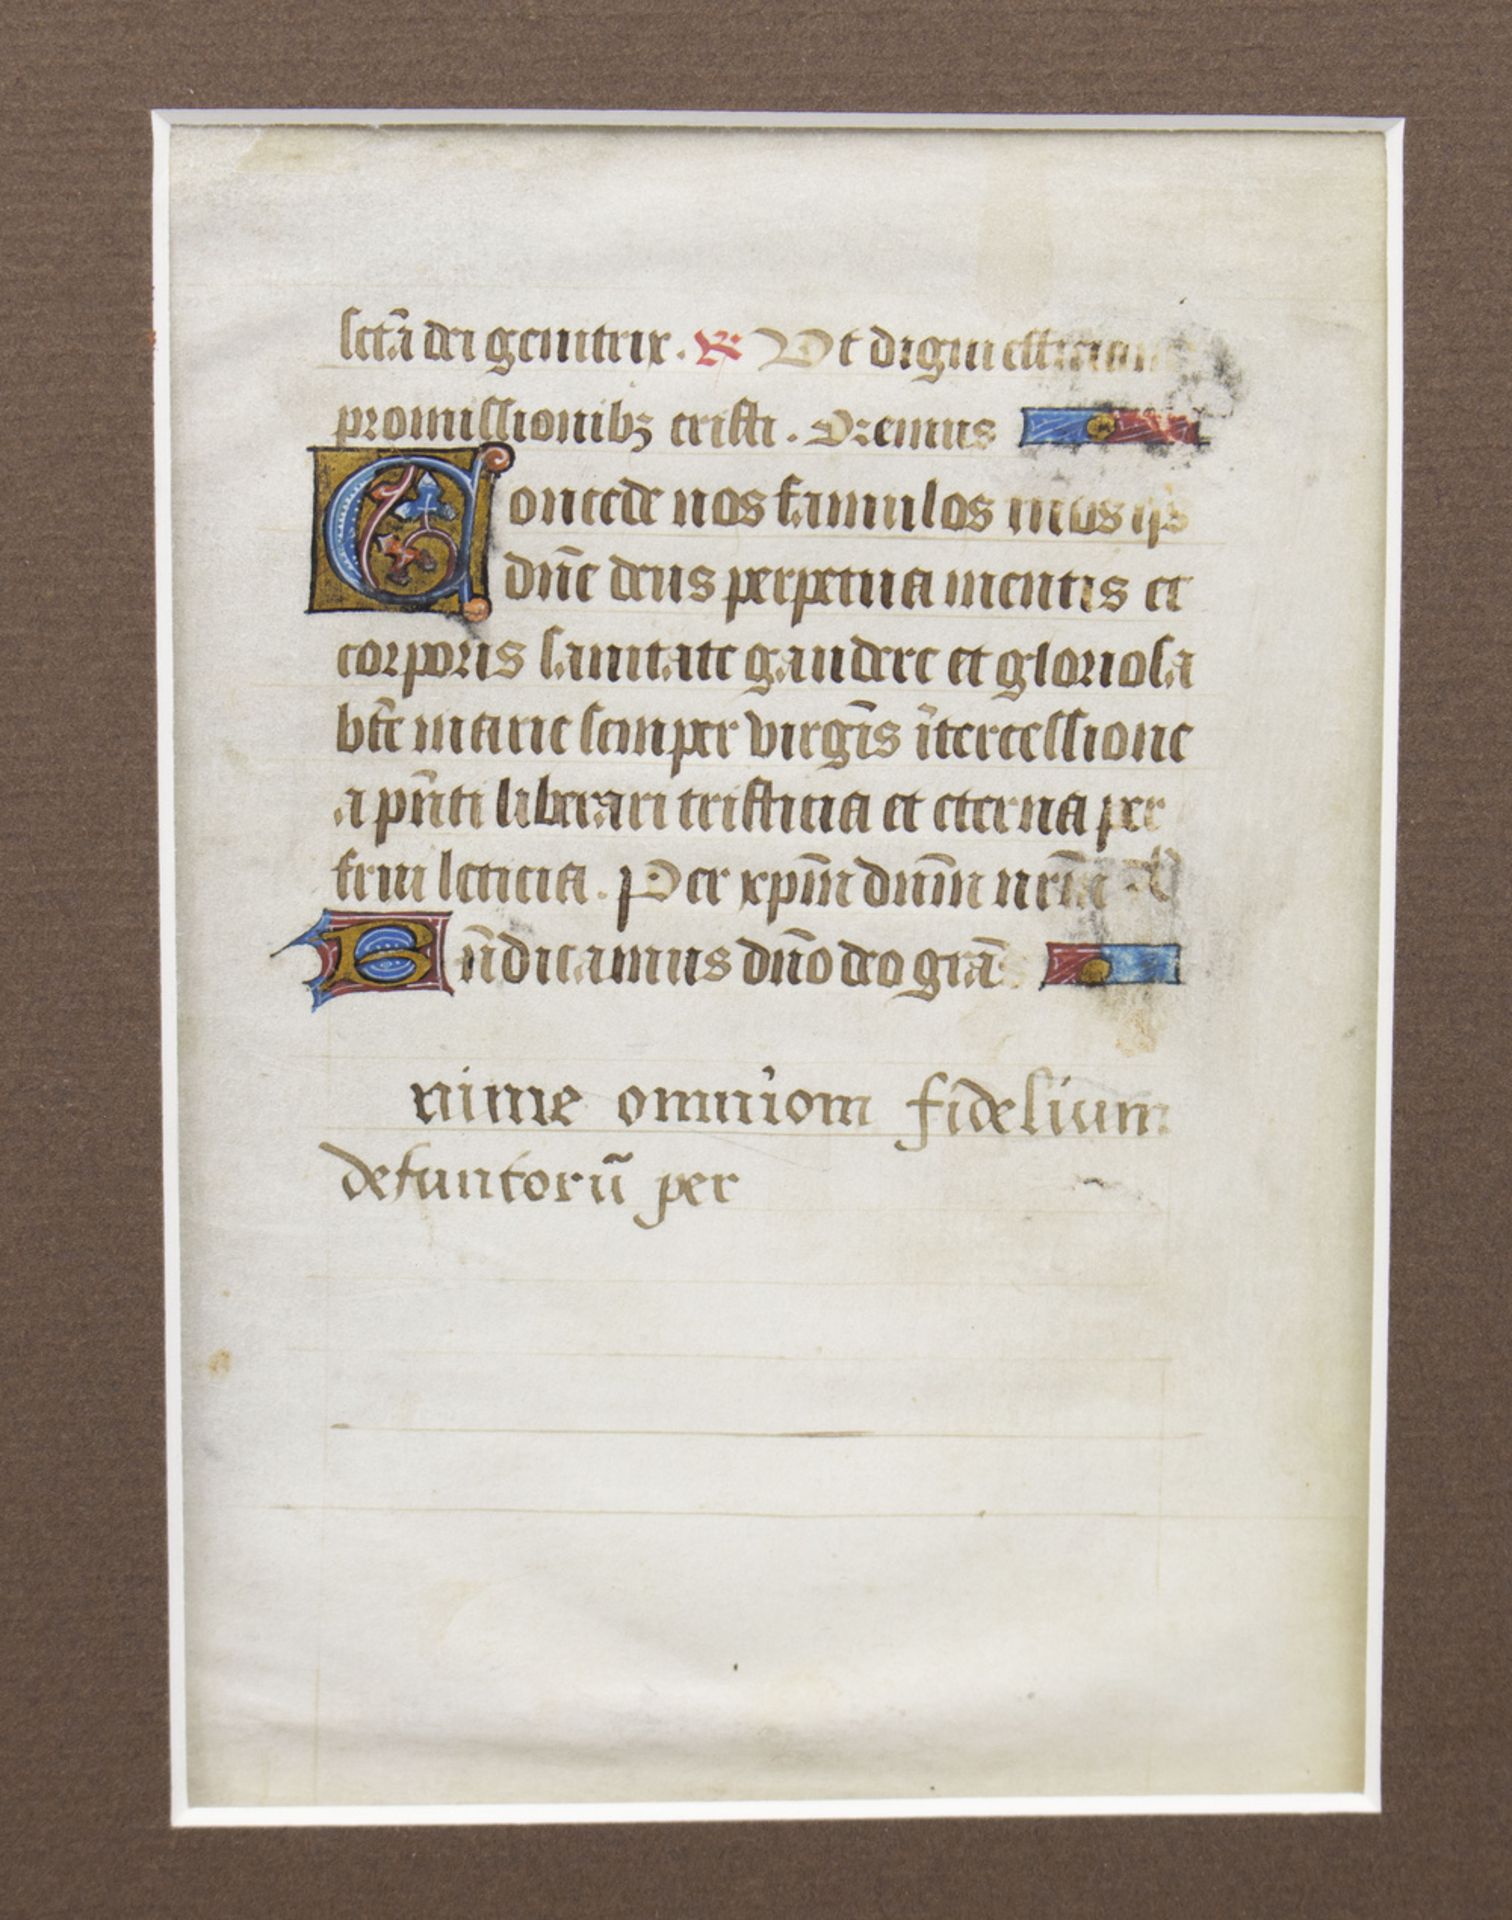 sctā dei genitrix. ℟ Ut digni efficiam
promissionibꝫ cristi. Oremus
Concede nos famulos tuos qs
dn̄e deus perpetua mentis et
corporis sanitate gaudere et gloriosa
bt̄e marie semper virgīs ītercessione
a pn̄ti liberari tristitia et eterna per
frui leticia. Per xpm̄ dnm̄ nrm̄
Bn̄dicamus dn̄o deo grā
nime omniom fidelium
defuntorū per